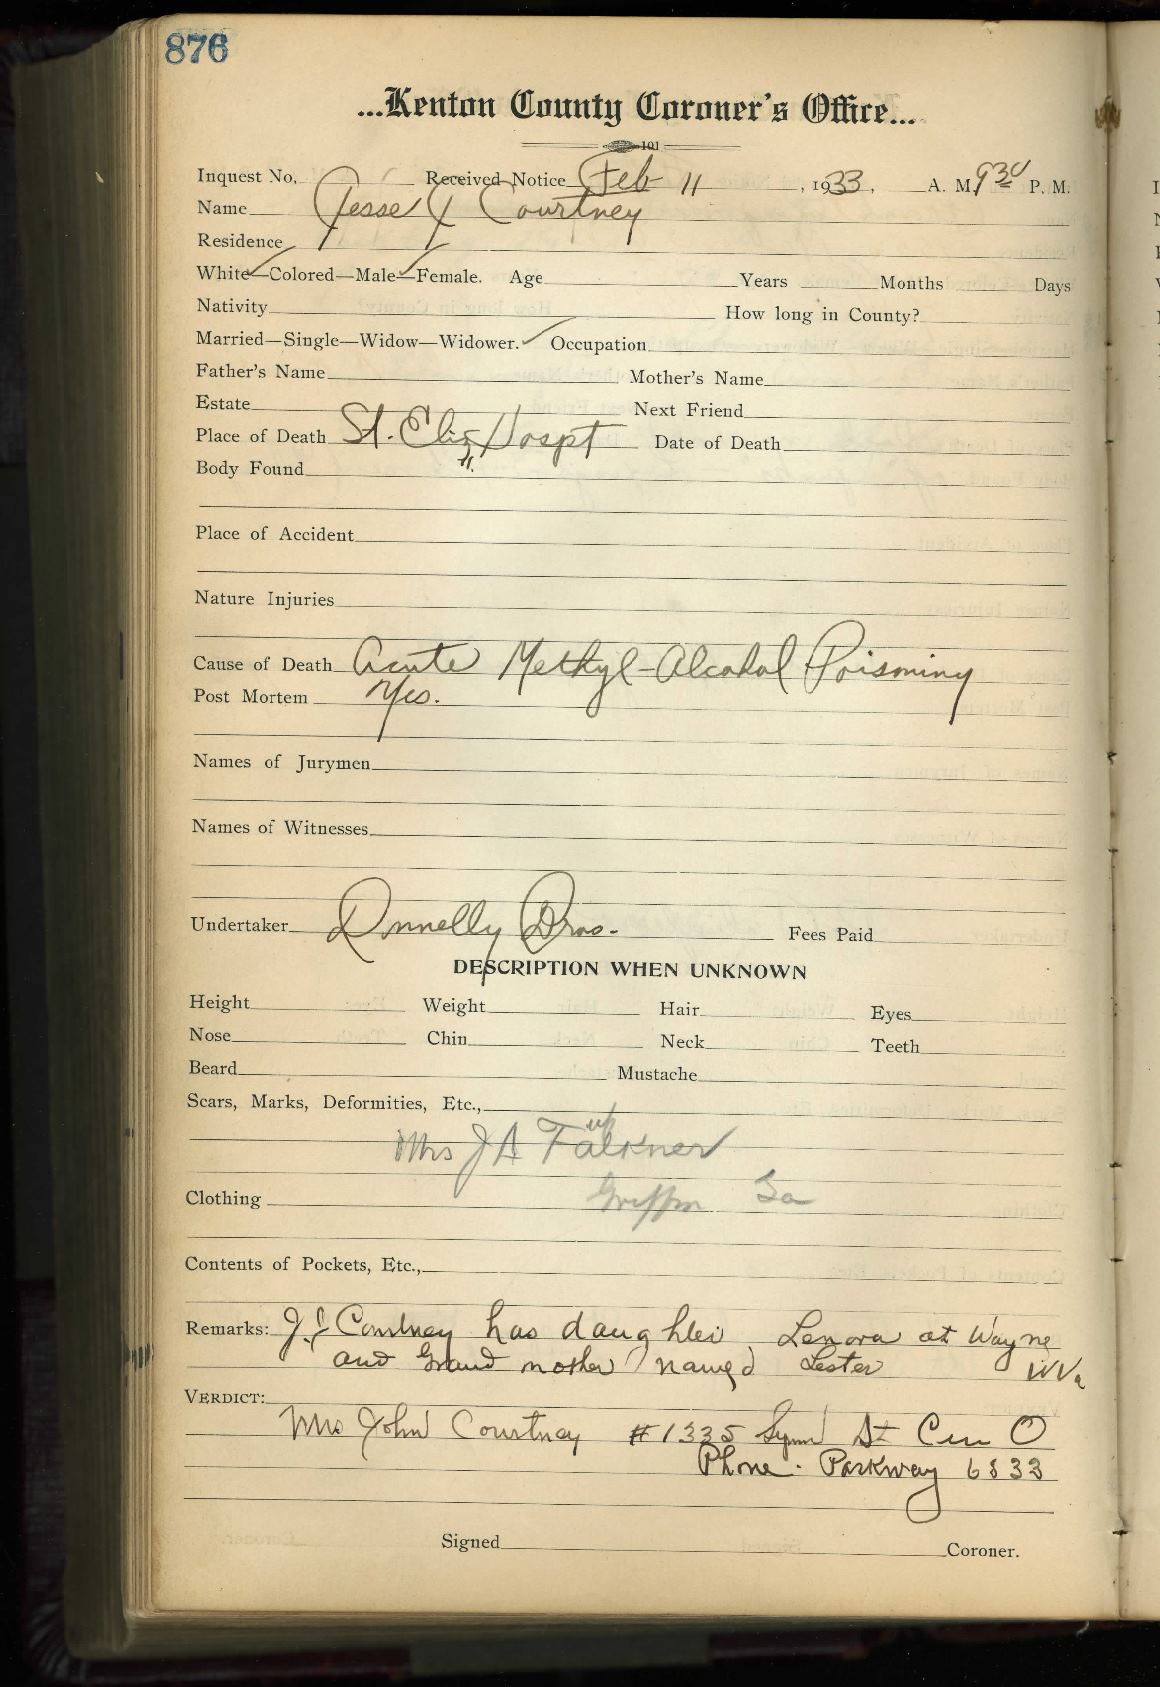 876
...Kenton County Coroner's Office...
101
Inquest No. Received Notice Feb 11, 1933, A. M. 9 30 P. M.
Name Jesse J Courtney
Residence
White—Colored—Male—Female. Age Years Months Days
Nativity How long in County?
Married—Single—Widow—Widower. Occupation
Father's Name Mother's Name
Estate Next Friend
Place of Death St. Eliz Hospt Date of Death
Body Found "
Place of Accident
Nature Injuries
Cause of Death Acute Methyl-Alcohol Poisoning
Post Mortem Yes.
Names of Jurymen
Names of Witnesses
Undertaker Donnelly Bros. Fees Paid
DESCRIPTION WHEN UNKNOWN
Height Weight Hair Eyes
Nose Chin Neck Teeth
Beard Mustache
Scars, Marks, Deformities, Etc.,
Mrs J A Falkner
Clothing Griffin Ga
Contents of Pockets, Etc.,
Remarks: J. J. Courtney has daughter Lenora at Wayne
and Grand mother named Lester W Va
VERDICT:
Mrs John Courtney # 1335 St Cin O
Phone. Parkway 6833
Signed Coroner.